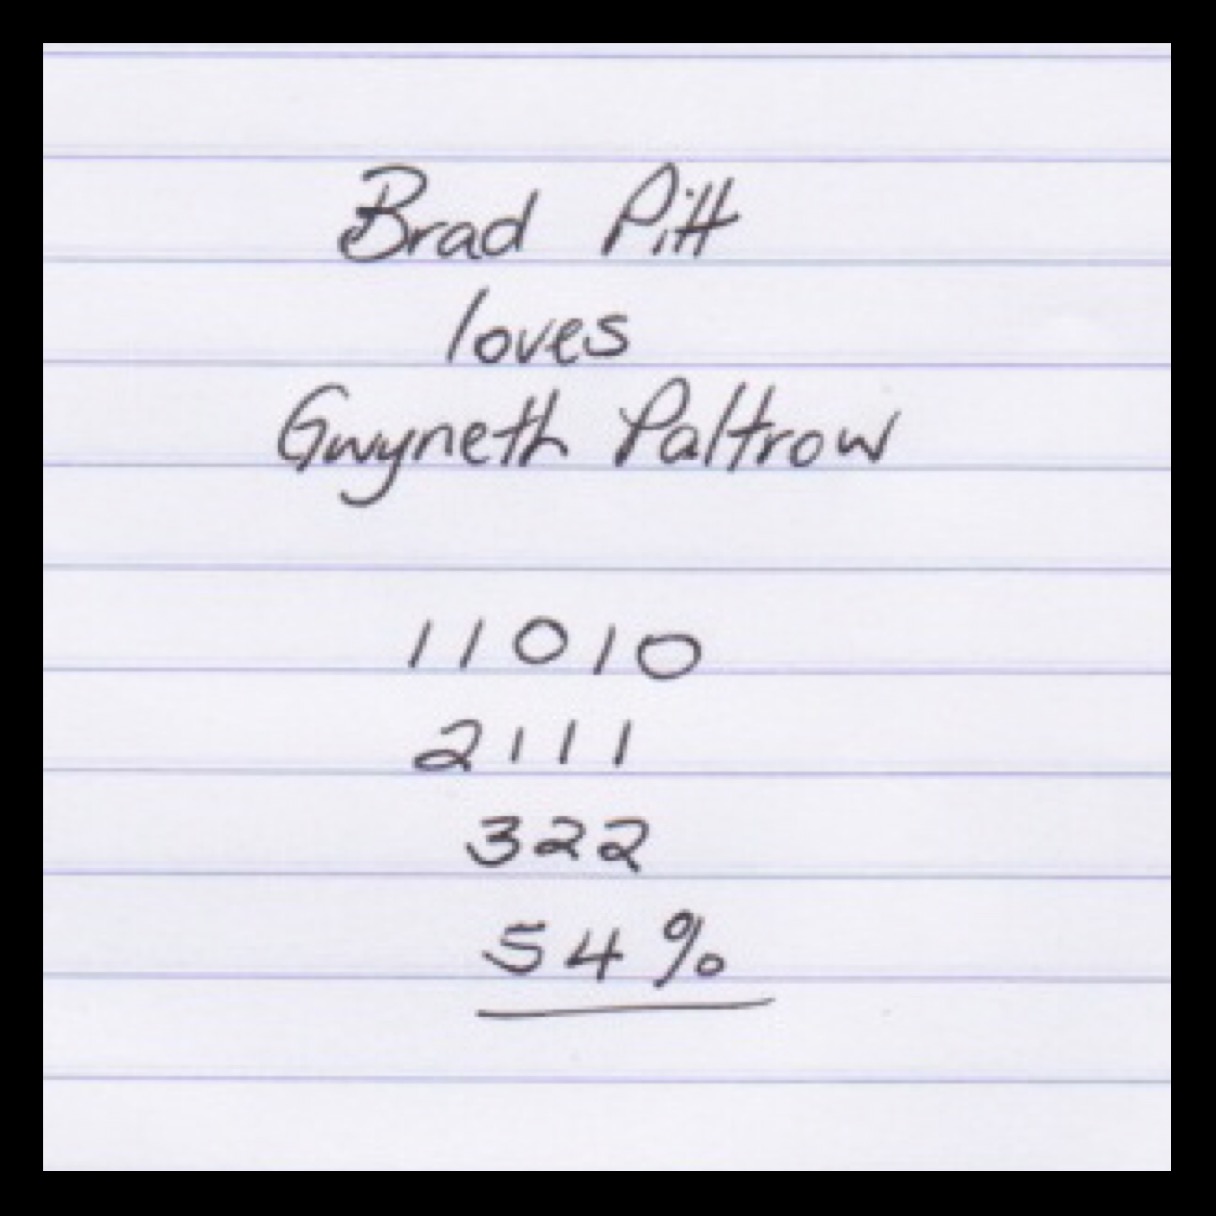 Brad Pitt
loves
Gwyneth Paltrow
11010
2111
322
54%